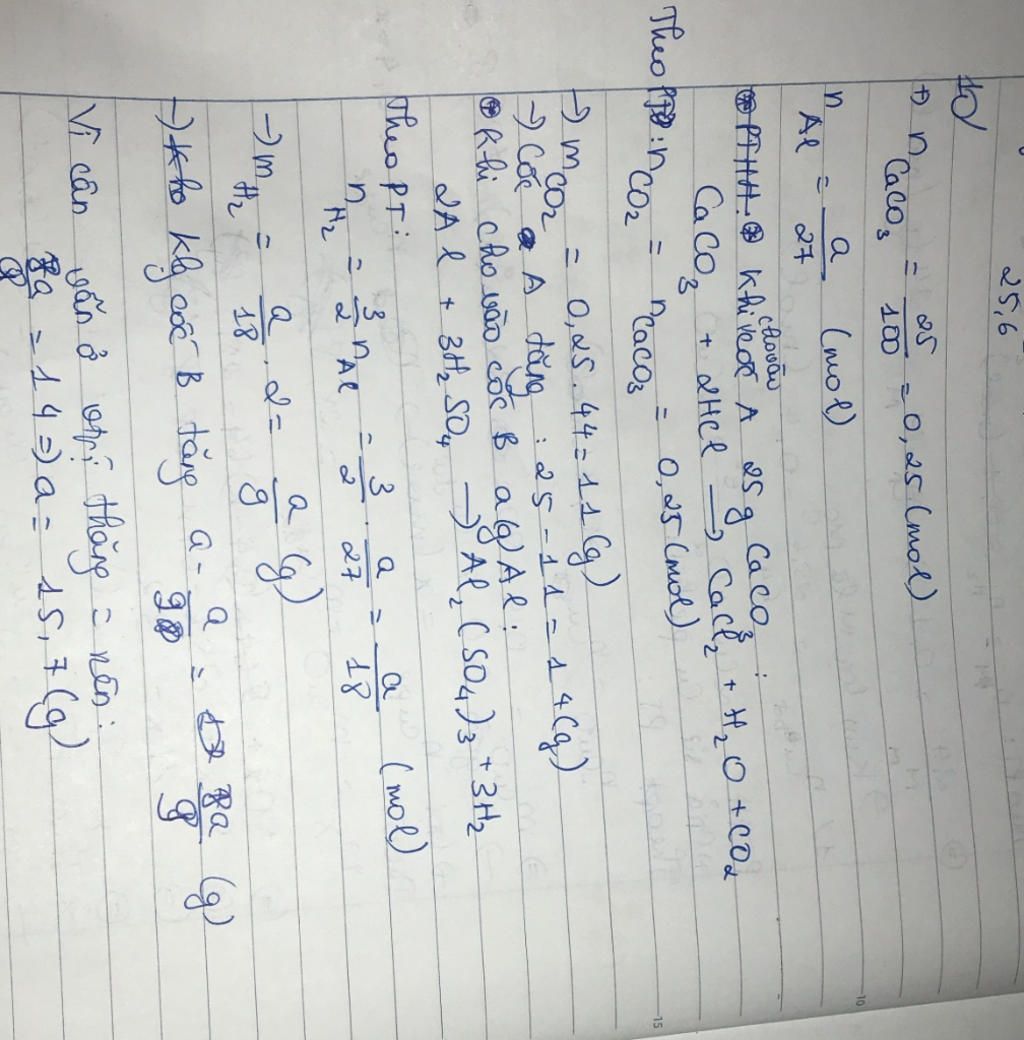 25,6
10)
+) nCaCO₃ = 25/100 = 0,25 (mol)
nAl = a/27 (mol)
PTHH. Khi cho vào cốc A 25 g CaCO₃ :
CaCO₃ + 2HCl → CaCl₂ + H₂O + CO₂
Theo PT: nCO₂ = nCaCO₃ = 0,25 (mol)
→ mCO₂ = 0,25 . 44 = 11 (g)
→ Cốc A tăng : 25 - 11 = 14 (g)
Khi cho vào cốc B a(g) Al :
2Al + 3H₂SO₄ → Al₂(SO₄)₃ + 3H₂
Theo PT :
nH₂ = 3/2 nAl = 3/2 . a/27 = a/18 (mol)
→ mH₂ = a/18 . 2 = a/9 (g)
→ Klg cốc B tăng a - a/9 = 8a/9 (g)
Vì cân vẫn ở vị trí thăng = nên :
8a/9 = 14 => a = 15,7 (g)
10
15